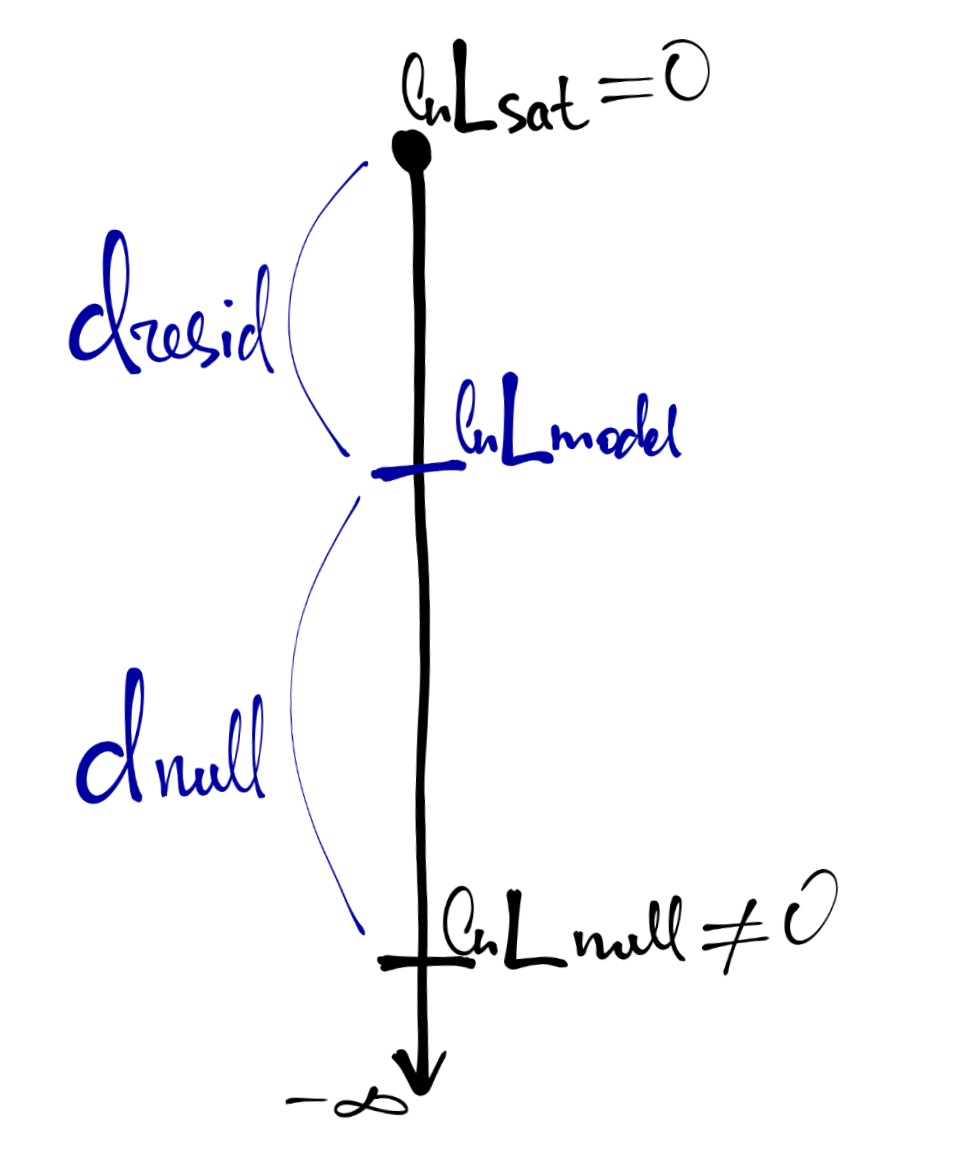 lnLsat=0
dresid
lnLmodel
dnull
lnLnull≠0
-∞